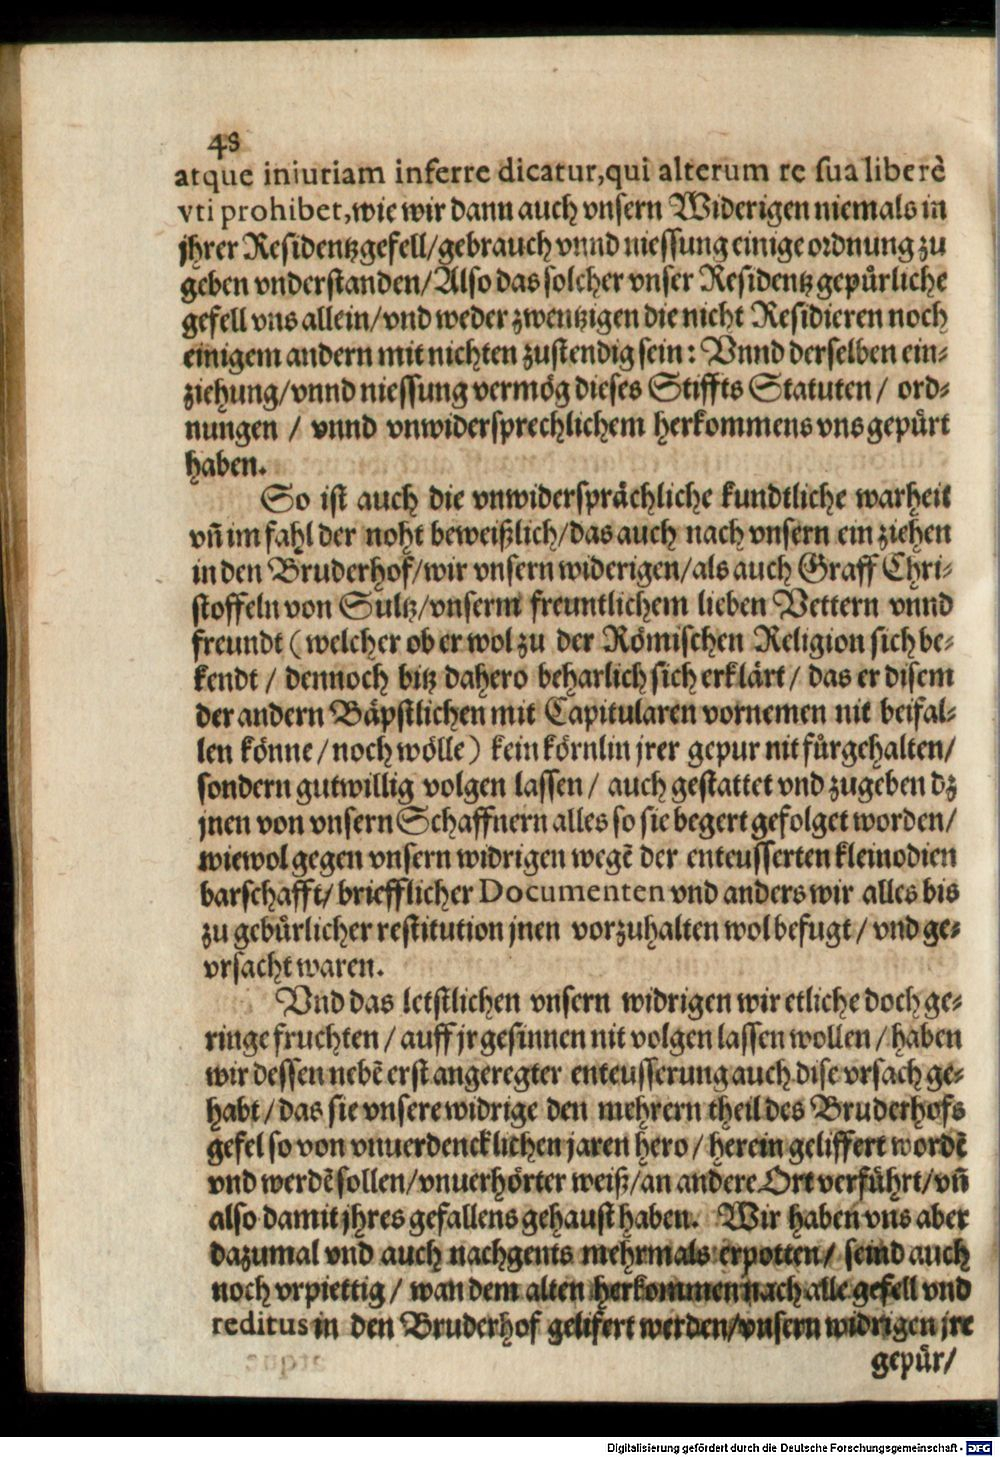 48
atque iniuriam inferre dicatur, qui alterum re sua liberè
vti prohibet, wie wir dann auch vnsern Widerigen niemals in
jhrer Residentzgefell/gebrauch vnnd niessung einige ordnung zu
geben vnderstanden/Also das solcher vnser Residentz gepürliche
gefell vns allein/vnd weder zwentzigen die nicht Residieren noch
einigem andern mit nichten zustendig sein: Vnnd derselben ein-
ziehung/vnnd niessung vermög dieses Stiffts Statuten/ ord-
nungen / vnnd vnwidersprechlichem herkommens vns gepürt
haben.
So ist auch die vnwidersprächliche kundtliche warheit
vñ im fahl der noht beweißlich/das auch nach vnsern ein ziehen
in den Bruderhof/wir vnsern widerigen/als auch Graff Chri-
stoffeln von Sultz/vnserm freuntlichem lieben Vettern vnnd
freundt (welcher ob er wol zu der Römischen Religion sich be-
kendt / dennoch bitz dahero beharlich sich erklärt/ das er disem
der andern Bäpstlichen mit Capitularen vornemen nit beifal-
len könne/noch wölle) kein körnlin jrer gepur nit fürgehalten/
sondern gutwillig volgen lassen/ auch gestattet vnd zugeben dz
jnen von vnsern Schaffnern alles so sie begert gefolget worden/
wiewol gegen vnsern widrigen wegẽ der enteusserten kleinodien
barschafft/briefflicher Documenten vnd anders wir alles bis
zu gebürlicher restitution jnen vorzuhalten wol befugt/vnd ge-
vrsacht waren.
Vnd das letstlichen vnsern widrigen wir etliche doch ge-
ringe fruchten/auff jr gesinnen nit volgen lassen wollen/haben
wir dessen nebẽ erst angeregter enteusserung auch dise vrsach ge-
habt/das sie vnsere widrige den mehrern theil des Bruderhofs
gefel so von vnuerdencklichen jaren hero/herein geliffert wordẽ
vnd werdẽ sollen/vnuerhörter weiß/an andere Ort verführt/vñ
also damit jhres gefallens gehaust haben. Wir haben vns aber
dazumal vnd auch nachgents mehrmals erpotten/ seind auch
noch vrpiettig/ wan dem alten herkommen nach alle gefell vnd
reditus in den Bruderhof gelifert werden/vnsern widrigen jre
gepür/
Digitalisierung gefördert durch die Deutsche Forschungsgemeinschaft - DFG